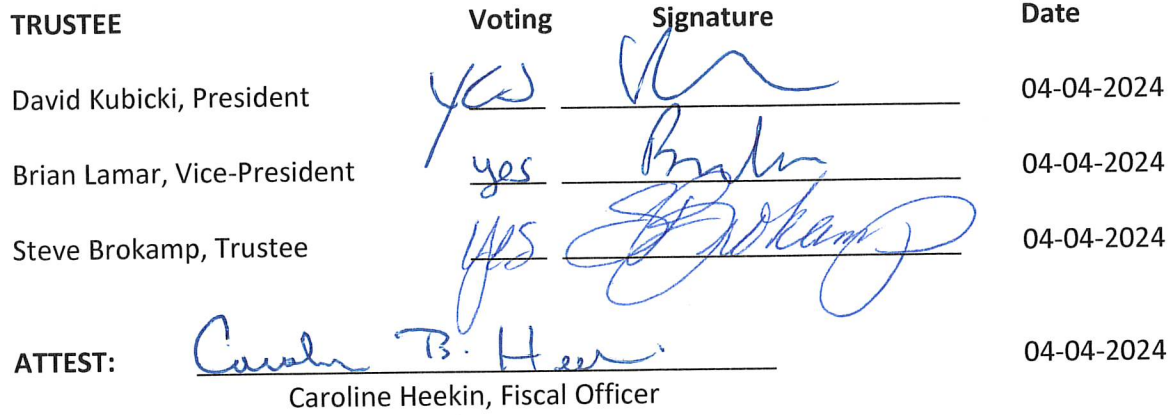 TRUSTEE Voting Signature Date
David Kubicki, President yes 04-04-2024
Brian Lamar, Vice-President yes 04-04-2024
Steve Brokamp, Trustee yes SBrokamp 04-04-2024
ATTEST: B. 04-04-2024
Caroline Heekin, Fiscal Officer